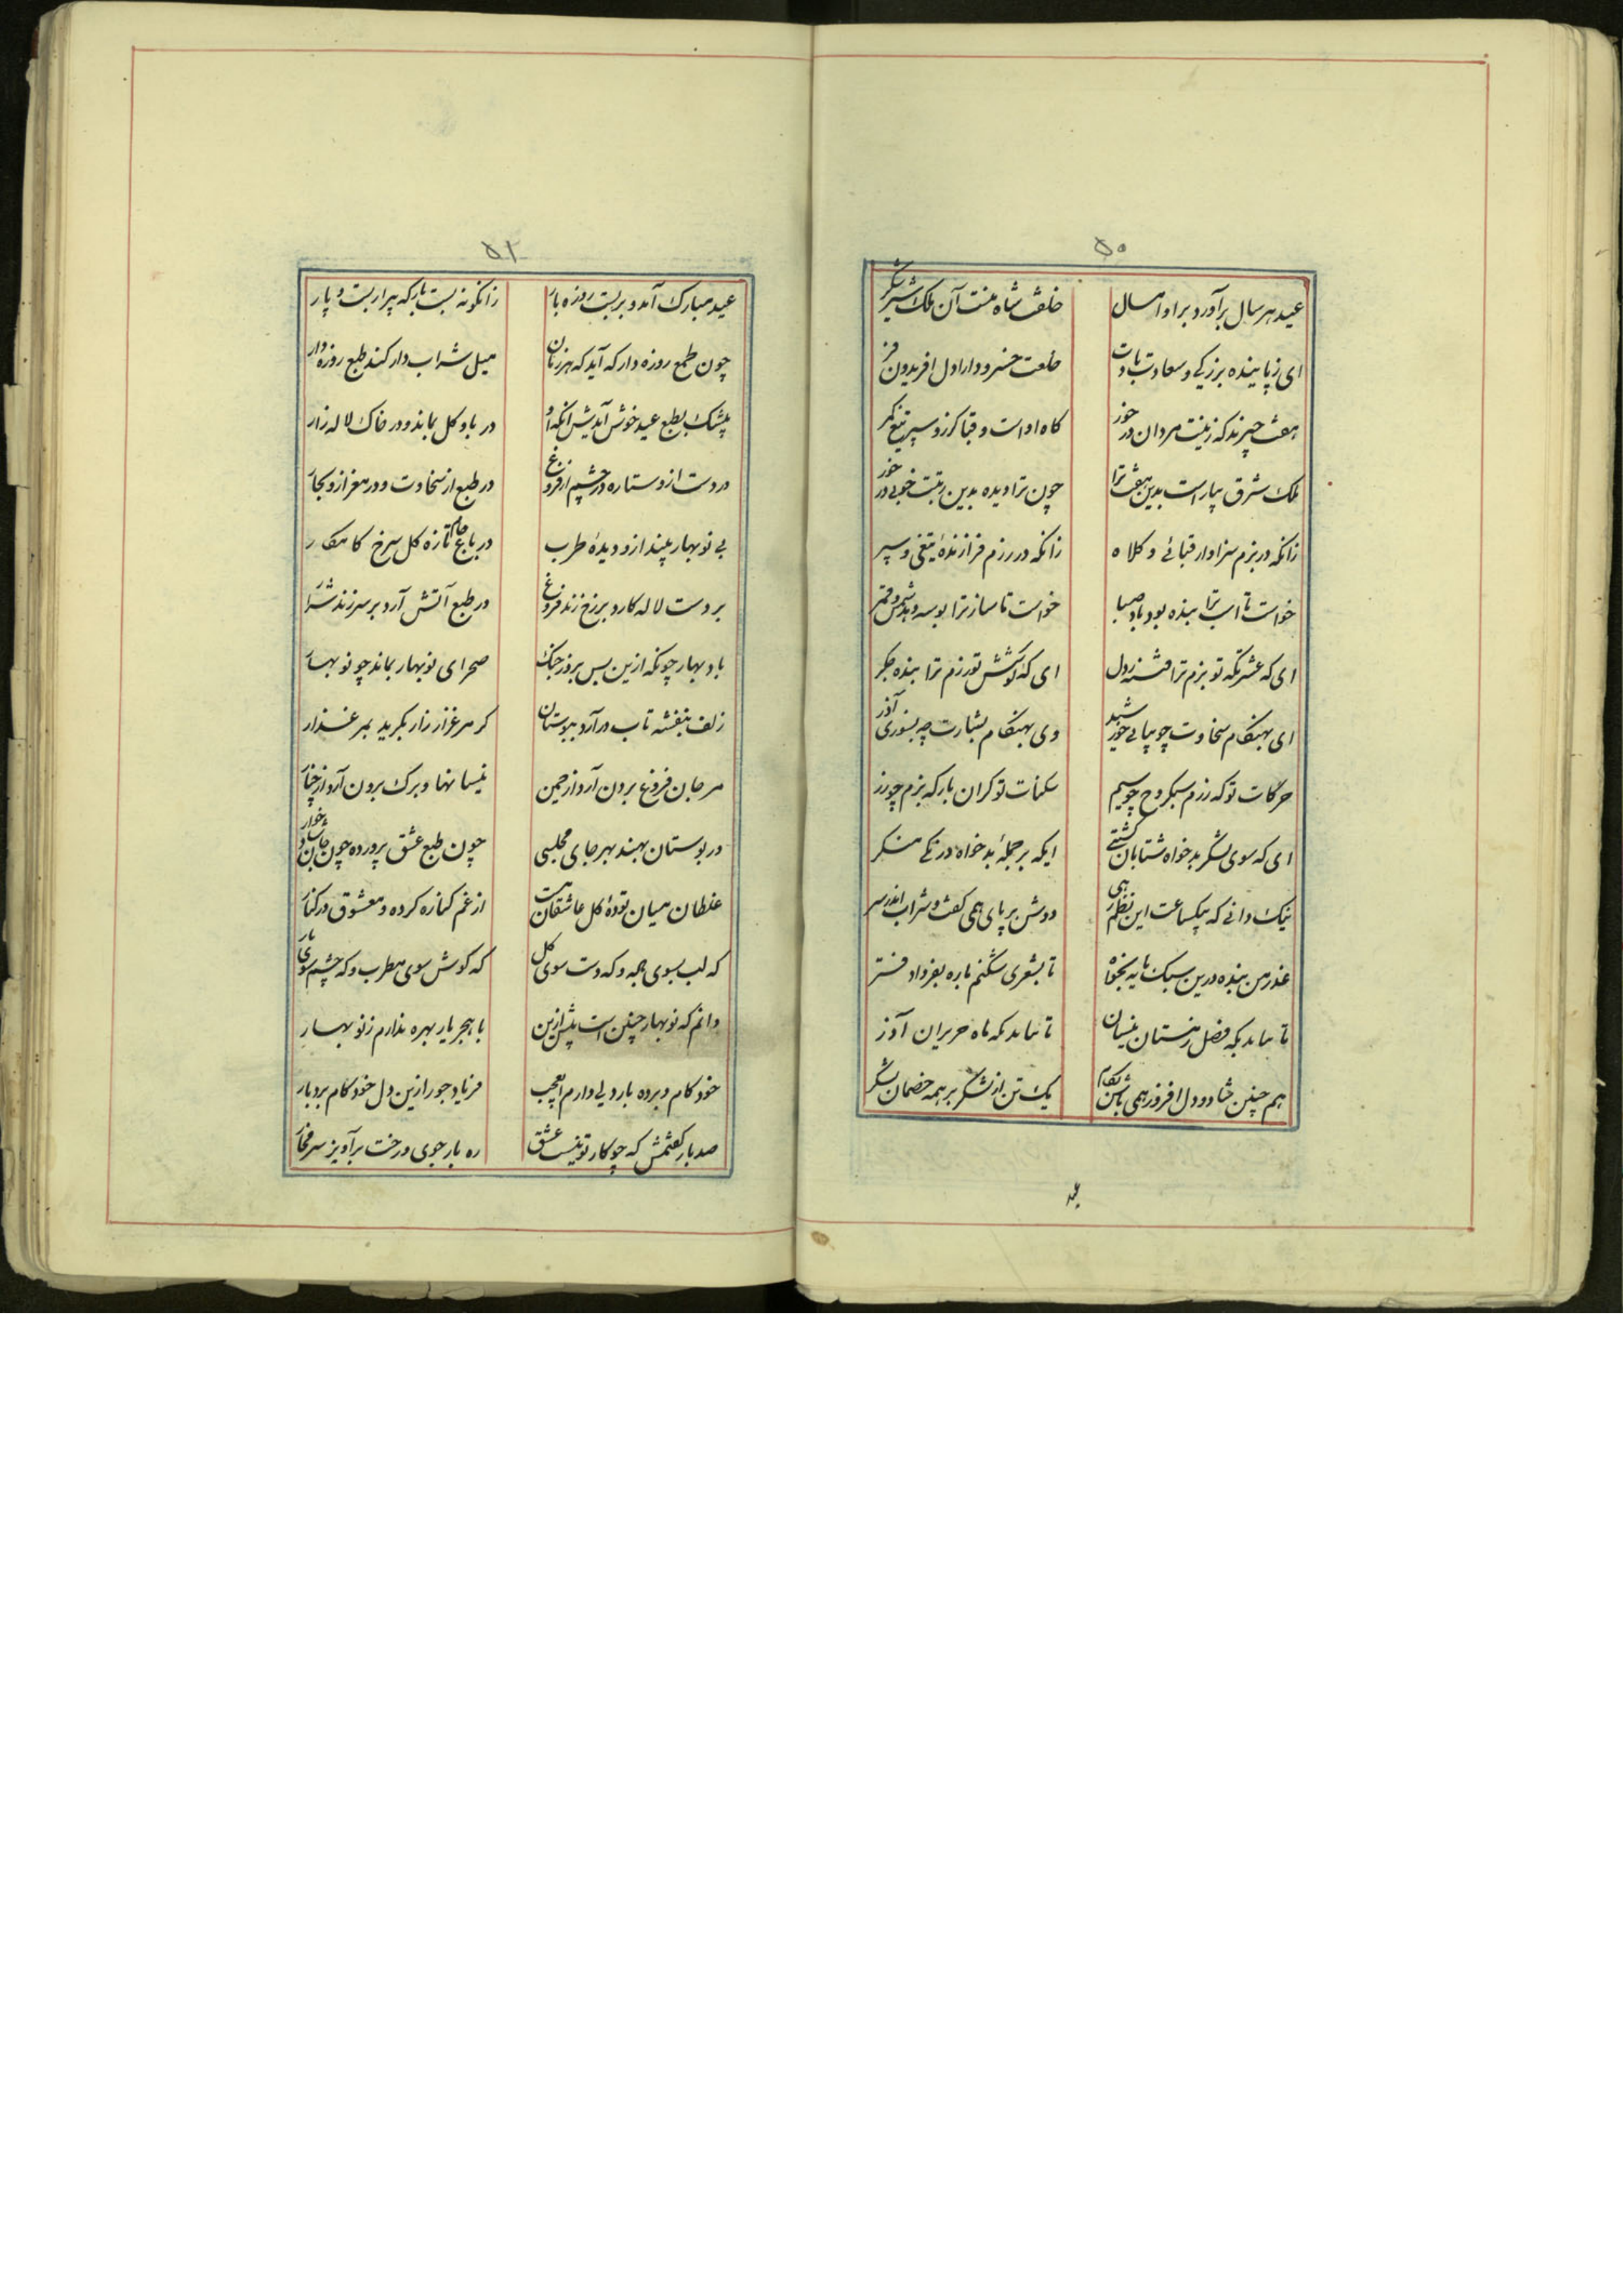 ۵۰
عید هر سال برآورد براو امسال خلقت شاه منت آن ملک شیر شکر
ای ز پاینده بزرگی و سعادت بادت خلعت خسرو دارا دل افریدون فر
هفت چیزند که زینت مردان در خور کلاه او است و قبا کرز و سپر تیغ و کمر
ملک شرق بیاراست بدین هفت ترا چون ترا دیده بدین رتبت خوبی در خور
زانکه در بزم سزاوار قبائی و کلاه زانکه در رزم فرازندهٔ تیغی و سپر
خواست تا اسب ترا بنده بود باد صبا خواست تا ساز ترا بوسه دهد شمس و قمر
ای که عشرتکه تو بزم ترا فتنه زدل ای که کوشش تو رزم ترا بنده جکر
ای بهنکام سخاوت چو بیائی خورشید وی بهنکام بشارت چه بسوزی آذر
حرکات تو که رزم سبکروح چو سیم سکنات تو کران بار که بزم چو زر
ای که سوی لشکر بدخواه شتابان کشتی ایکه بر جملهٔ بدخواه درنکی منکر
نیک دانی که بیکساعت این نظم رهی دوش بر پای همی کفت و شراب اندر سر
عذر من بنده درین سبک مایه بخواه تا بشعری شکنم باره بفرداد فستر
تا نماند بکه فصل زمستان نیسان تا نماند بکه ماه حزیران آذر
هم چنین شاد و دل افروز همی باش بکام یک تن از لشکر بر همه خصمان لشکر
۵۱
عید مبارک آمد و بربست روزه بار زانکونه بست بار که پیرار بست و پار
چون طمع روزه دار که آید که هر زمان میل شراب دار کند طبع روزه دار
بیشک بطبع عید خوش آیدش انکه او در باد کل بماند و در خاک لاله زار
در دست ازو ستاره و در چشم ازو فروغ در طبع از سخاوت و در مغز ازو بخار
بی نوبهار بیند ازو دیدهٔ طرب در باغ جام تازه کل سرخ کامکار
بر دست لاله کارد و بر رخ زند فروغ در طبع آتش آرد و بر سر زند شرار
باد بهار چونکه ازین پس بروز جنک صحرای نوبهار بماند چو نوبهار
زلف بنفشه تاب در آرد ببوستان کر مرغزار زار بکرید بمرغزار
مرجان فروغ برون آرد از چمن نیسا نها و برک برون آرد از چنار
در بوستان بهند بهر جای مجلسی چون طبع عشق پرورده چون جان باده خوار
غلطان میان تودهٔ کل عاشقان مست از غم کناره کرده و معشوق در کنار
که لب بسوی باده و که دست سوی کل که کوش سوی مطرب و که چشم سوی یار
دانم که نوبهار چنین است پیش ازین با هجر یار بهره ندارم ز نوبهار
خود کام و برده بار دلی دارم ای عجب فریاد جور ازین دل خود کام بردبار
صد بار کفتمش که چو کار تو نیست عشق ره بار جوی و رخت برآویز سر مخار